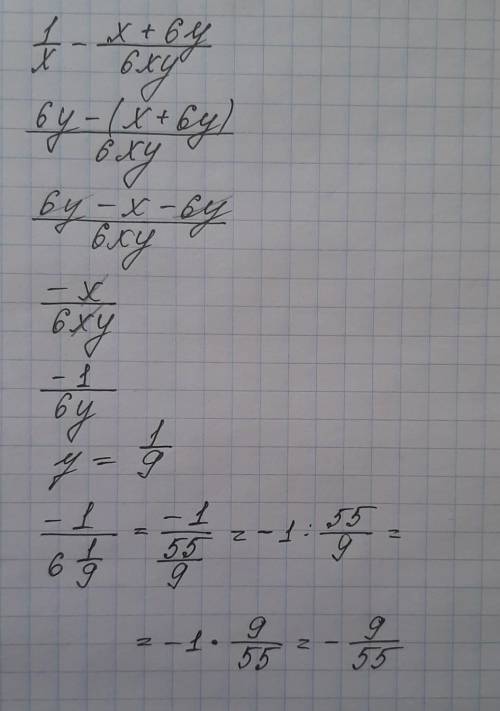 1/x - (x + 6y)/(6xy)
(6y - (x + 6y))/(6xy)
(6y - x - 6y)/(6xy)
(-x)/(6xy)
(-1)/(6y)
y = 1/9
(-1)/(6 1/9) = (-1)/(55/9) = -1 : 55/9 =
= -1 · 9/55 = - 9/55